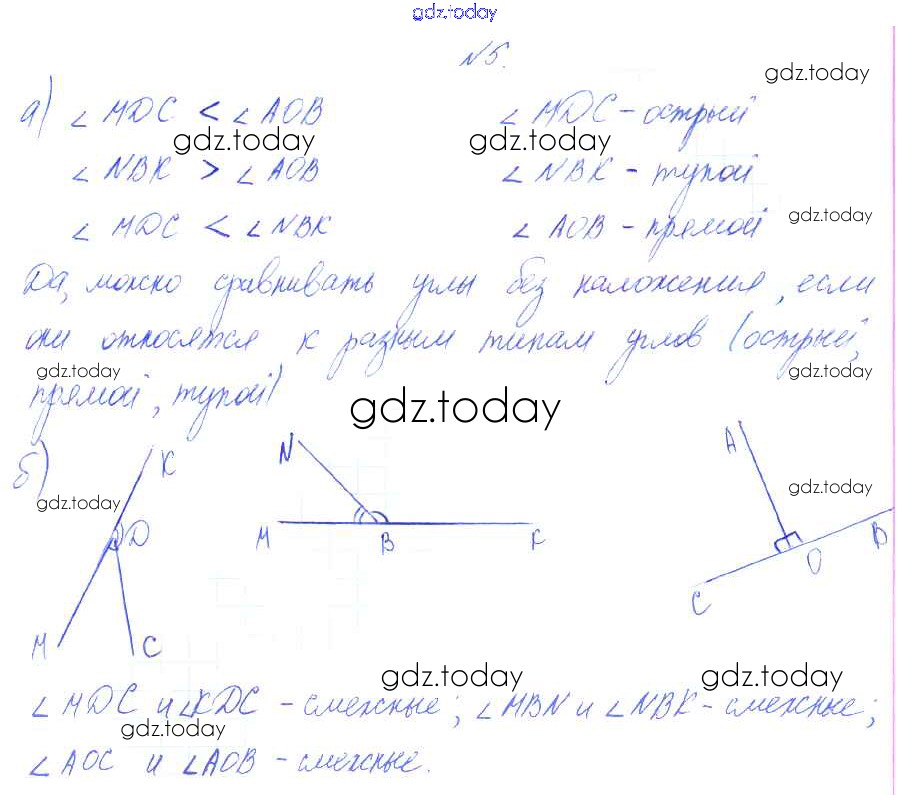 gdz.today
№5.
gdz.today
а) ∠MDC < ∠AOB ∠MDC - острый
gdz.today gdz.today
∠NBK > ∠AOB ∠NBK - тупой
gdz.today
∠MDC < ∠NBK ∠AOB - прямой
Да, можно сравнивать углы без наложения, если
они относятся к разным типам углов (острый,
gdz.today gdz.today
прямой, тупой)
gdz.today
б)
K N A
gdz.today gdz.today
D M B K B
O
C
M C
gdz.today gdz.today
∠MDC и ∠KDC - смежные; ∠MBN и ∠NBK - смежные;
gdz.today
∠AOC и ∠AOB - смежные.